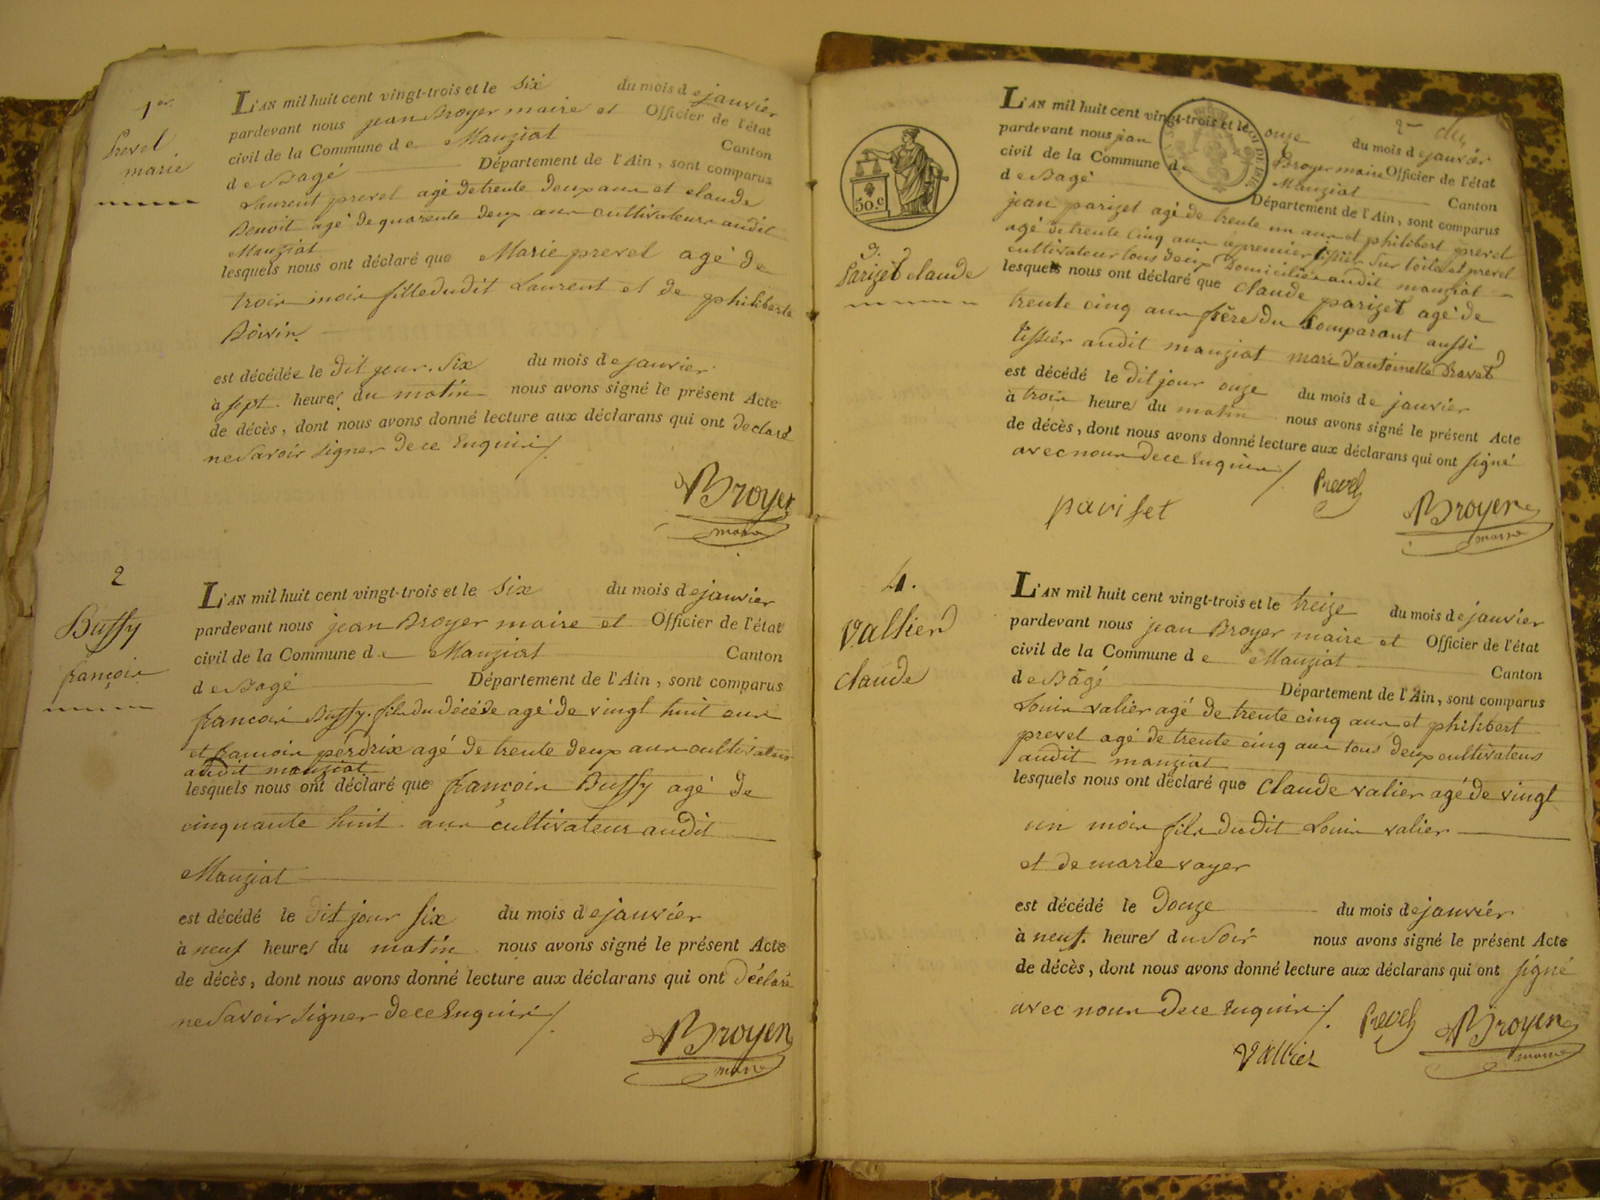 1er
Prevel
marie
L'AN mil huit cent vingt-trois et le six du mois de janvier
pardevant nous jean Broyer maire et Officier de l'état
civil de la Commune de Manziat Canton
de Bagé Département de l'Ain, sont comparus
Laurent prevel agé de trente deux ans et claude
Benoit agé de quarente deux ans cultivateurs audit
Manziat
lesquels nous ont déclaré que Marie prevel agé de
trois mois fille dudit Laurent et de philiberte
Boivin
est décédée le dit jour six du mois de janvier
à sept heures du matin nous avons signé le présent Acte
de décès, dont nous avons donné lecture aux déclarans qui ont declaré
ne Savoir Signer de ce Enquis /.
Broyer
maire
2
Buffy
françois
L'AN mil huit cent vingt-trois et le six du mois de janvier
pardevant nous jean Broyer maire et Officier de l'état
civil de la Commune de Manziat Canton
de Bagé Département de l'Ain, sont comparus
francois Buffy fils du décédé agé de vingt huit ans
et francois perdrix agé de trente deux ans cultivateurs
audit manziat
lesquels nous ont déclaré que françois Buffy agé de
cinquante huit ans cultivateur audit
Manziat
est décédé le dit jour six du mois de janvier
à neuf heures du matin nous avons signé le présent Acte
de décès, dont nous avons donné lecture aux déclarans qui ont déclaré
ne Savoir Signer de ce Enquis /.
Broyer
maire
50.c
3.
Parizet claude
L'AN mil huit cent vingt-trois et le onze du mois de janvier
pardevant nous jean Broyer maire Officier de l'état
civil de la Commune de Manziat Canton
de Bagé Département de l'Ain, sont comparus
jean parizet agé de trente un ans et philibert prevel
agé de trente cinq ans le premier tissier sur toile et prevel
cultivateur tous deux Domiciliés audit manziat
lesquels nous ont déclaré que claude parizet agé de
trente cinq ans frère du Comparant aussi
tissier audit manziat mari d'antoinette Dravet
est décédé le dit jour onze du mois de janvier
à trois heures du matin nous avons signé le présent Acte
de décès, dont nous avons donné lecture aux déclarans qui ont signé
avec nous de ce Enquis /.
Prevel
pariset
Broyer
maire
4.
Vallier
claude
L'AN mil huit cent vingt-trois et le treize du mois de janvier
pardevant nous jean Broyer maire et Officier de l'état
civil de la Commune de Manziat Canton
de Bâgé Département de l'Ain, sont comparus
Louis valier agé de trente cinq ans et philibert
prevel agé de trente cinq ans tous deux cultivateurs
audit manziat
lesquels nous ont déclaré que Claude valier agé de vingt
un mois fils dudit Louis valier
et de marie vayer
est décédé le Douze du mois de janvier
à neuf heures du Soir nous avons signé le présent Acte
de décès, dont nous avons donné lecture aux déclarans qui ont signé
avec nous de ce Enquis /.
Prevel
Vallier
Broyer
maire